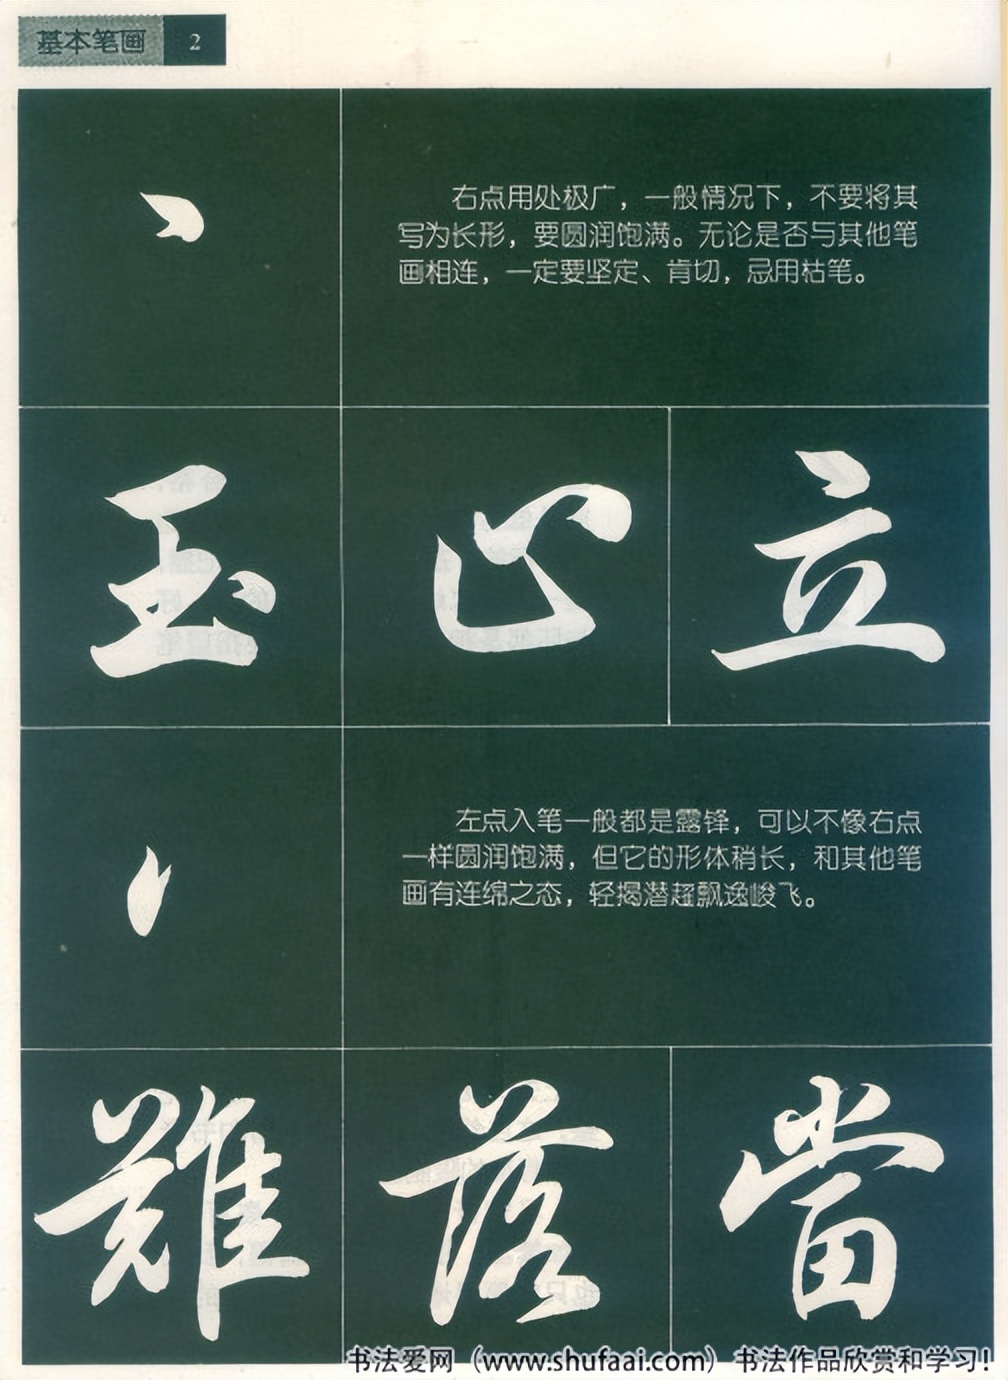 基本笔画 2
右点用处极广，一般情况下，不要将其
写为长形，要圆润饱满。无论是否与其他笔
画相连，一定要坚定、肯切，忌用枯笔。
玉 心 立
左点入笔一般都是露锋，可以不像右点
一样圆润饱满，但它的形体稍长，和其他笔
画有连绵之态，轻揭潜趯飘逸峻飞。
難 落 當
书法爱网（www.shufaai.com）书法作品欣赏和学习！